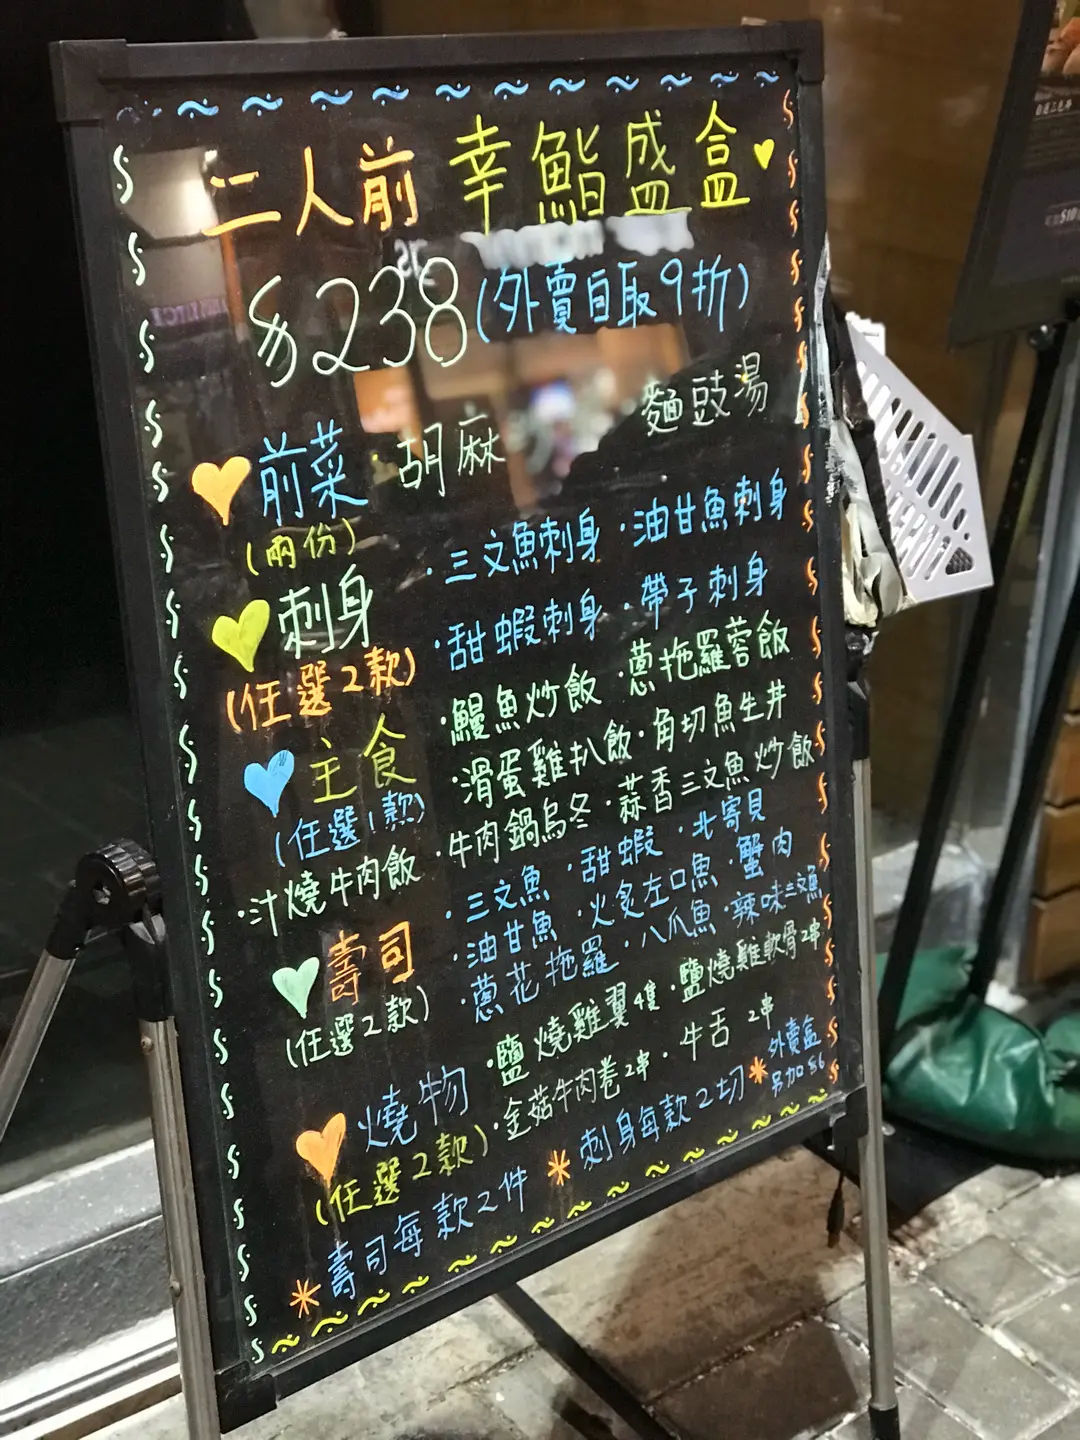 二人前 幸鮨盛盒
$238 (外賣自取9折)
前菜 胡麻 麵豉湯
(兩份)
刺身 ·三文魚刺身 ·油甘魚刺身
(任選2款) ·甜蝦刺身 ·帶子刺身
主食 ·鰻魚炒飯 ·蔥拖羅蓉飯
(任選1款) ·滑蛋雞扒飯 ·角切魚生丼
·汁燒牛肉飯 ·牛肉鍋烏冬 ·蒜香三文魚炒飯
壽司 ·三文魚 ·甜蝦 ·北寄貝
(任選2款) ·油甘魚 ·火炙左口魚 ·蟹肉
·蔥花拖羅 ·八爪魚 ·辣味三文魚
燒物 ·鹽燒雞翼4隻 ·鹽燒雞軟骨2串
(任選2款) ·金菇牛肉卷2串 ·牛舌 2串
*壽司每款2件 *刺身每款2切 *外賣盒
另加$6